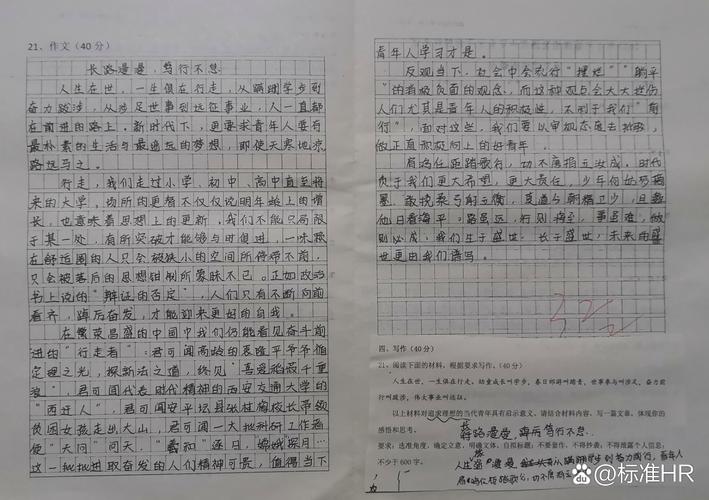 21、作文(40分)
长路漫漫,笃行不怠
人生在世,一生俱在行走,从蹒跚学步到
奋力跋涉,从涉足世事到远征事业,人一直都
在前进的路上。新时代下,更要求青年人要有
最朴素的生活与最遥远的梦想,即使天寒地冻
路远马亡。
行走,我们走过小学、初中、高中直至将
来的大学,场所的更替不仅仅说明年龄上的增
长,也意味着思想上的更新,我们不能只局限
于某一处,有所突破才能够与时俱进,一味
在舒适圈的人只会被狭小的空间所停滞不前,
只会被落后的思想钳制所蒙昧不已。正如政治
书上说的“辩证的否定”,人们只有不断向前
看齐,踔厉奋发,才能迎来更好的自我。
在繁荣昌盛的中国中我们仍能看见奋斗前
进的“行走者”:君可闻高龄的袁隆平爷爷
定理之光,探新法之道,终见“喜看稻菽千重
浪”,君可闻代表时代精神的西安交通大学的
“西迁人”,君可闻张桂梅校长带领
贫困女孩走出大山,君可闻一大批科研工作者
使“天问”问天,“羲和”逐日,嫦娥探月…
这一批批进取奋发的人们精神可贵,值得当下
青年人学习才是。
反观当下,社会中会流行“摆烂”“躺平”
的消极负面的观念,而这种观点会大大挫伤
人们尤其是青年人的积极性,不利于我们“前
行”,面对这些,我们要以审视态度去抵御,
做正直积极向上的好青年。
肩鸿任钜踏歌行,功不唐捐玉汝成。时代
赋于我们更大希望,更大责任,少年何妨
敢挽桑弓射玉衡,莫道今朝精卫少,且邀
他日看海平。路虽远,行则将至,事虽难,做
则必成,我们生于盛世,长于盛世,未来的盛
世更由我们谱写。
四、写作(40分)
21、阅读下面的材料,根据要求写作。(40分)
人生在世,一生俱在行走。幼童成长叫学步,春日郊游叫踏青,世事参与叫涉足,奋力前
行叫跋涉,伟大事业叫远征。
以上材料对追求理想的当代青年具有启示意义。请结合材料内容,写一篇文章,体现你的
感悟和思考。
长路漫漫,踔厉笃行不怠。
要求:选准角度,确定立意,明确文体,自拟标题;不要套作,不得抄袭;不得泄露个人信息;
不少于600字。
标准HR